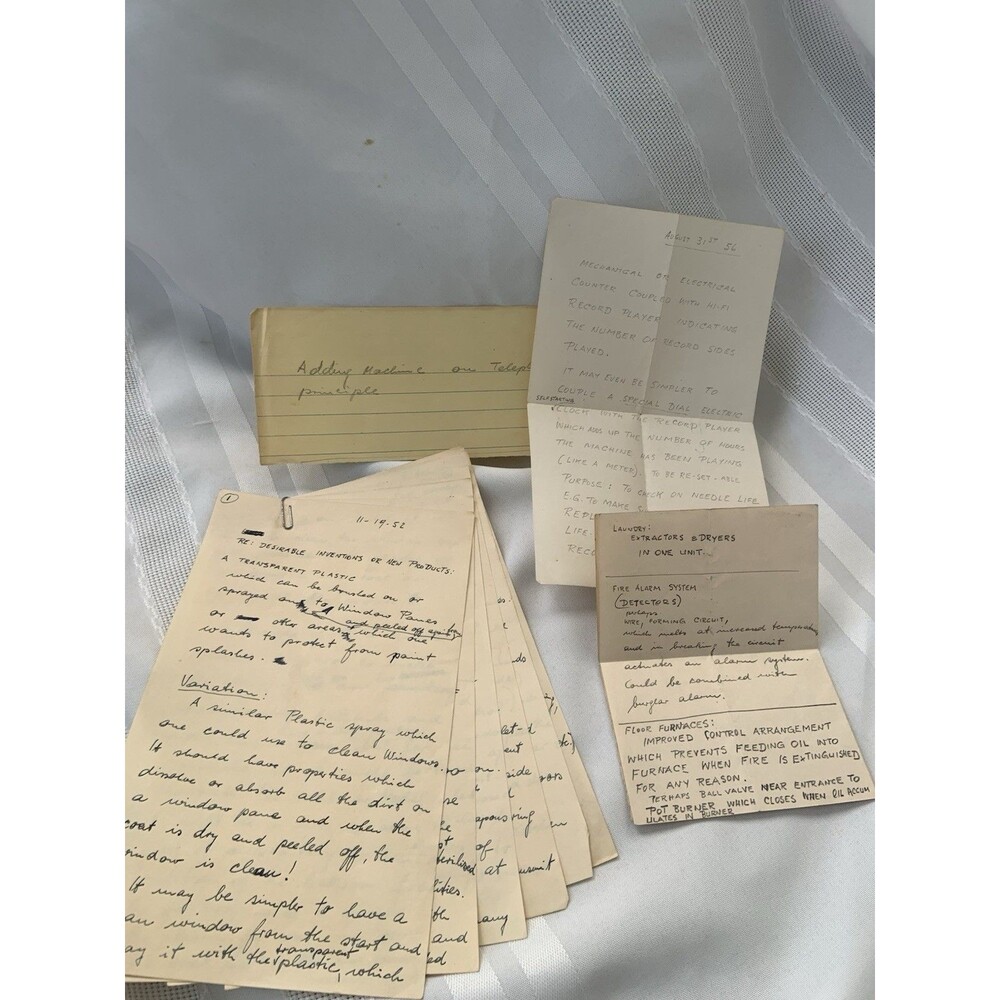 Adding Machine on
principle
AUGUST 31ST 56
MECHANICAL OR ELECTRICAL
COUNTER COUPLED WITH HI-FI
RECORD PLAYER INDICATING
THE NUMBER OF RECORD SIDES
PLAYED.
IT MAY EVEN BE SIMPLER TO
COUPLE A SPECIAL DIAL ELECTRIC
SELFSTARTING
CLOCK WITH THE RECORD PLAYER
WHICH ADDS UP THE NUMBER OF HOURS
THE MACHINE HAS BEEN PLAYING
(LIKE A METER). TO BE RE-SET-ABLE
PURPOSE: TO CHECK ON NEEDLE LIFE
E.G. TO MAKE
REPL
LIFE.
RECO
1
11-19-52
RE: DESIRABLE INVENTIONS OR NEW PRODUCTS:
A TRANSPARENT PLASTIC
which can be brushed on or
sprayed onto Window Panes
and peeled off again
or other areas which one
wants to protect from paint
splashes.
Variation:
A similar Plastic spray which
one could use to clean Windows.
It should have properties which
dissolve or absorb all the dirt on
a window pane and when the
coat is dry and peeled off, the
window is clean!
It may be simpler to have a
window from the start and
transparent
it with the plastic, which
LAUNDRY:
EXTRACTORS & DRYERS
IN ONE UNIT
FIRE ALARM SYSTEM
(DETECTORS)
perhaps
WIRE, FORMING CIRCUIT,
which melts at increased temperature
and in breaking the circuit
actuates an alarm system.
Could be combined with
burglar alarm.
FLOOR FURNACES:
IMPROVED CONTROL ARRANGEMENT
WHICH PREVENTS FEEDING OIL INTO
FURNACE WHEN FIRE IS EXTINGUISHED
FOR ANY REASON.
PERHAPS BALL VALVE NEAR ENTRANCE TO
POT BURNER WHICH CLOSES WHEN OIL ACCUM
ULATES IN BURNER